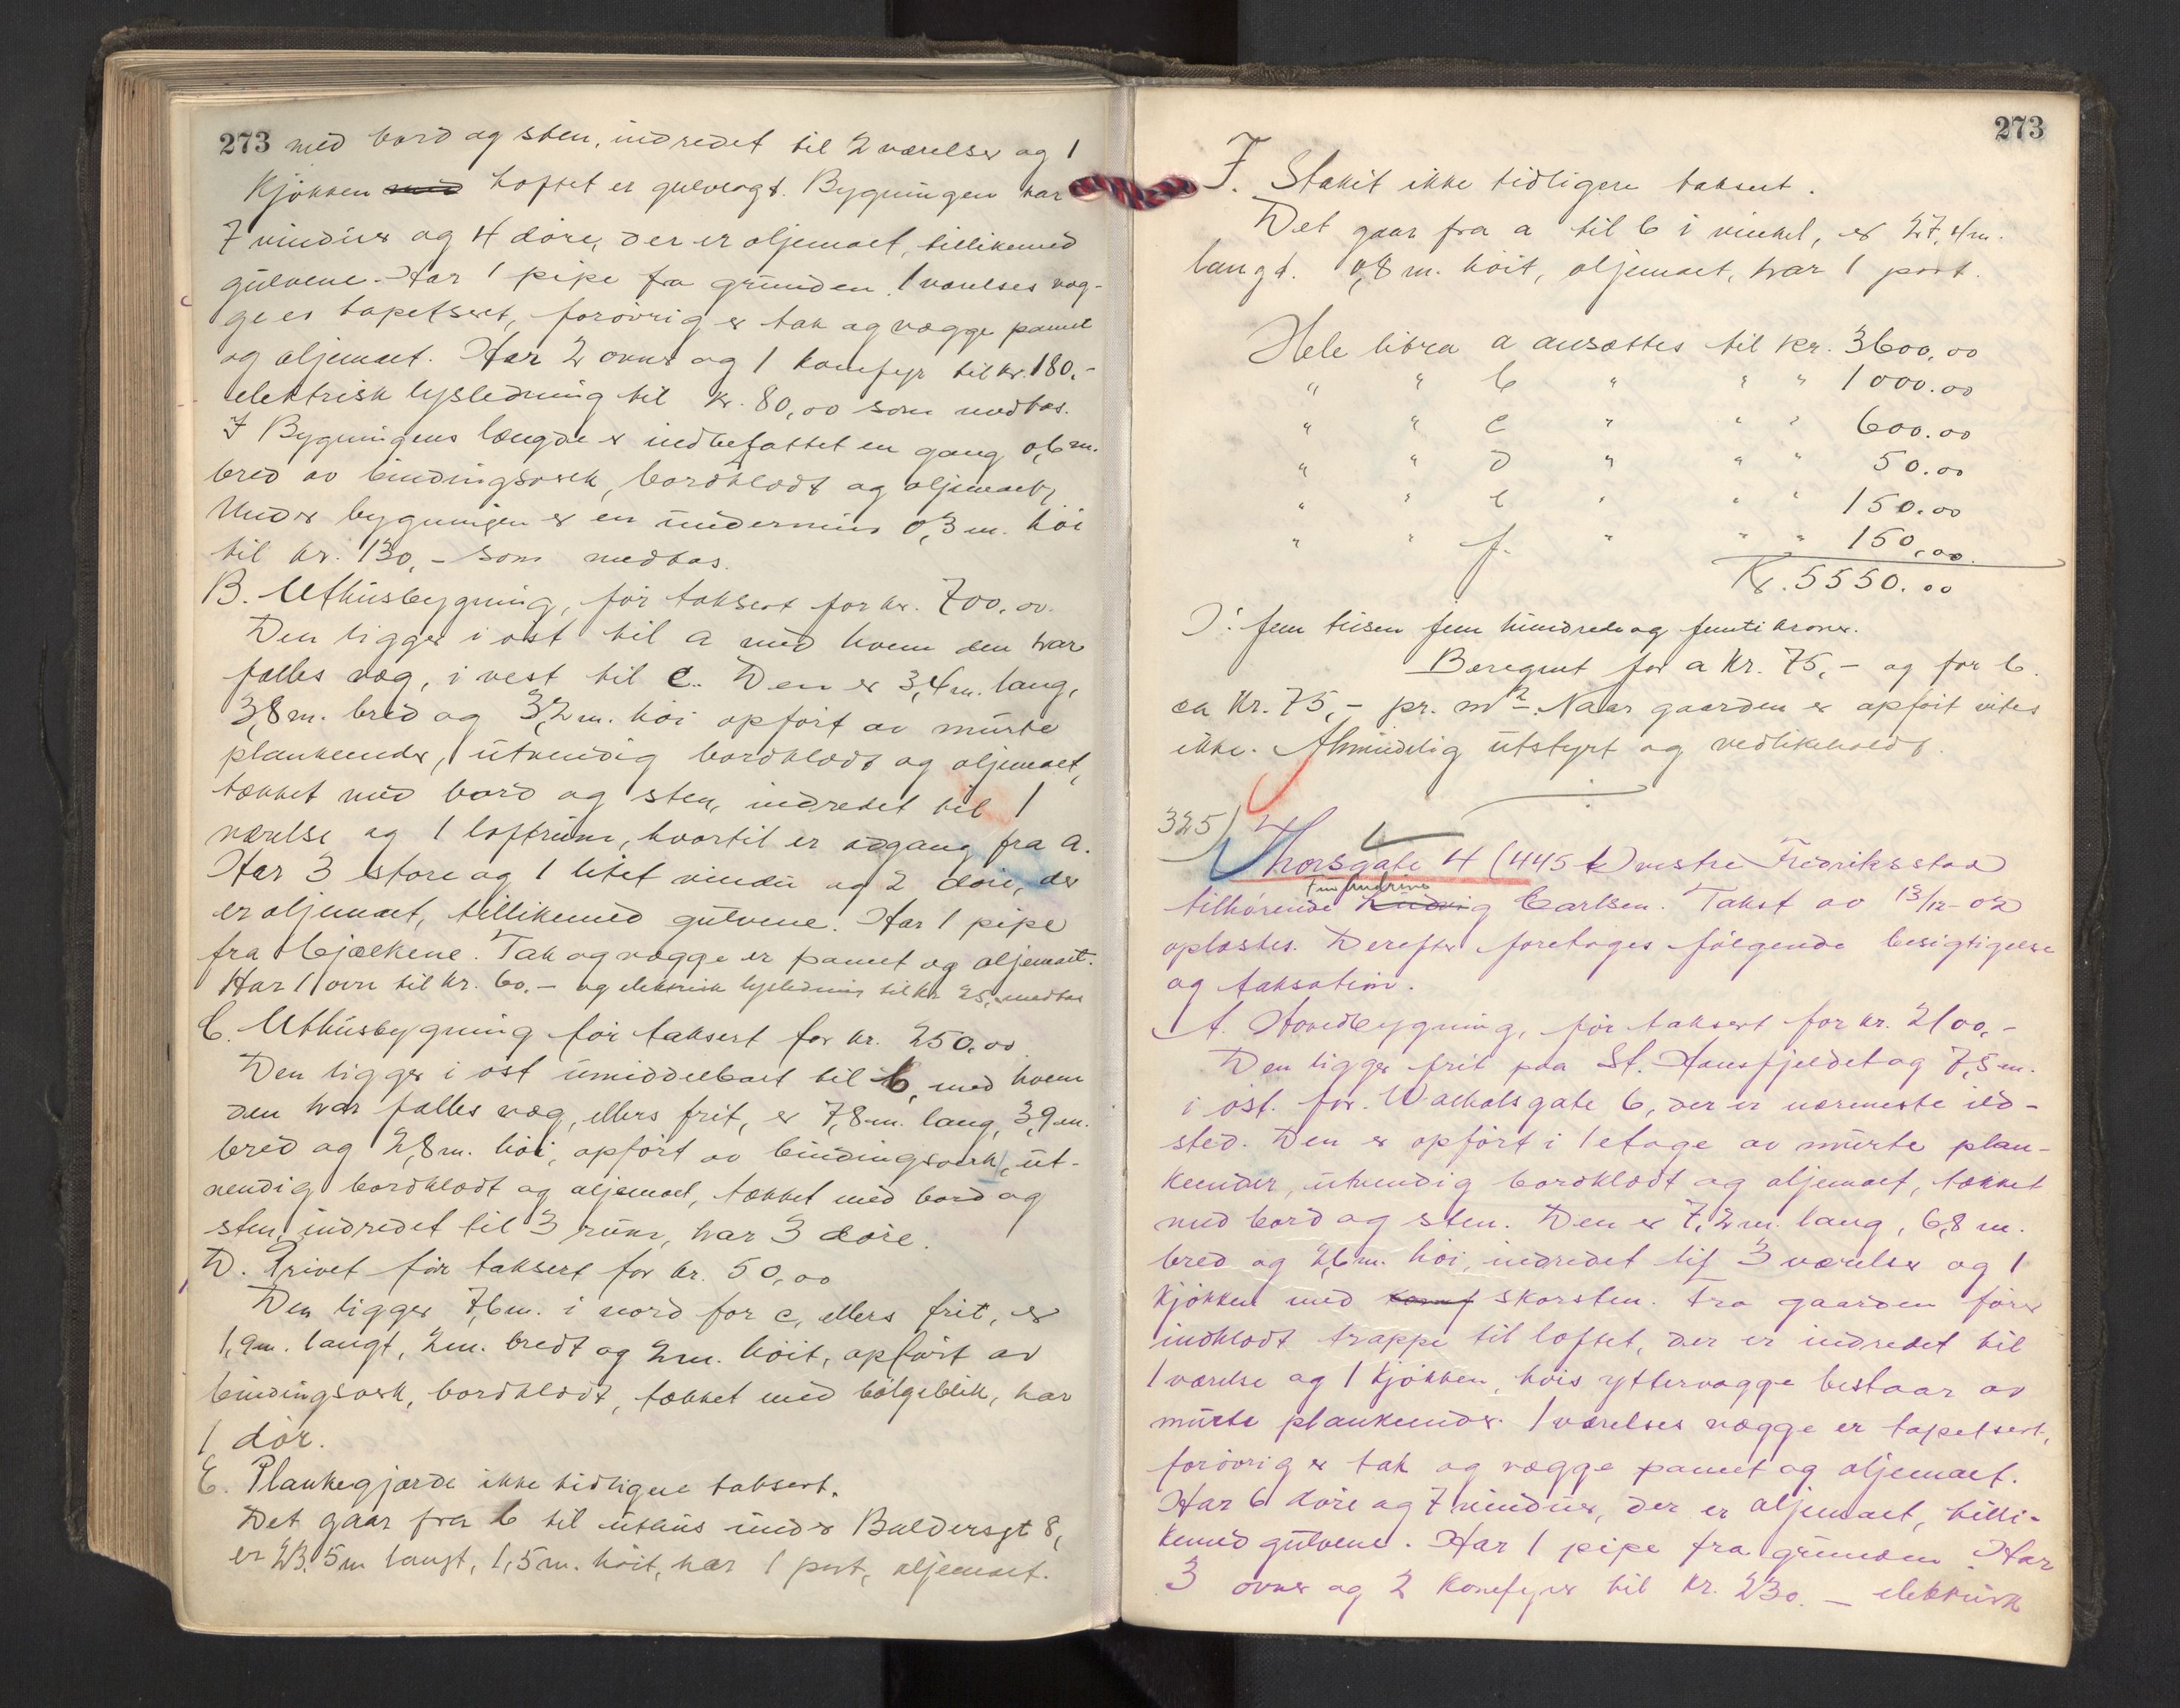 273 med bord og sten, indredet til 2 værelser og 1
Kjøkken med Loftet er gulvlagt. Bygningen har
7 vinduer og 4 døre, der er oljemalt, tillikemed
gulvene. Har 1 pipe fra grunden. 1 værelses væg-
ge er tapetsert, forøvrig er tak og vægge panelt
og oljemalt. Har 2 ovner og 1 komfyr til kr. 180,-
elektrisk lysledning til kr. 80,00 som medtas.
I Bygningens længde er indbefattet en gang 0,6 m.
bred av bindingsverk, bordklædt og oljemalt,
Under bygningen er en undermur 0,3 m. høi
til kr. 130,- som medtas.
B. Uthusbygning, før taksert for kr. 700,00.
Den ligger i øst til a med hvem den har
fælles væg, i vest til C. Den er 3,4 m. lang,
3,8 m. bred og 3,2 m. høi opført av murte
plankeender, utvendig bordklædt og oljemalt,
tækket med bord og sten, indredet til 1
værelse og 1 loftrum, hvortil er adgang fra a.
Har 3 store og 1 litet vindu og 2 døre, der
er oljemalt, tillikemed gulvene. Har 1 pipe
fra bjælkene. Tak og vægge er panelt og oljemalt.
Har 1 ovn til kr. 60,- og elektrisk lysledning til kr. 25,- medtas
C. Uthusbygning før taksert for kr. 250,00
Den ligger i øst umiddelbart til b, med hvem
den har fælles væg, ellers frit, er 7,8 m. lang, 3,9 m.
bred og 2,8 m. høi, opført av bindingsverk, ut-
vendig bordklædt og oljemalt, tækket med bord og
sten, indredet til 3 rum, har 3 døre.
D. Privet før taksert for kr. 50,00
Den ligger 7,6 m. i nord for c, ellers frit, er
1,9 m. langt, 2 m. bredt og 2 m. høit, opført av
bindingsverk, bordklædt, tækket med bølgeblik, har
1 dør.
E. Plankegjærde ikke tidligere taksert.
Det gaar fra b til uthus under Baldersgt 8,
er 23,5 m langt, 1,5 m. høit, har 1 port, oljemalt.
273
F. Stakit ikke tidligere taksert.
Det gaar fra a til b i vinkel, er 27,4 m.
langt. 0,8 m. høit, oljemalt, har 1 port.
Hele litra a ansættes til kr. 3600,00
" " b " " " 1000.00
" " c " " " 600.00
" " d " " " 50.00
" " e " " " 150.00
" " f. " " " 150,00
Kr. 5550.00
D: fem tusen fem hundrede og femti kroner.
Beregnet for a kr. 75,- og for b.
ca kr. 75,- pr. m². Naar gaarden er opført vites
ikke. Almindelig utstyrt og vedlikeholdt.
325)
Thorsgate 4 (445 k) vestre Fredriksstad
Andrine
tilhørende Ludvig Carlsen. Takst av 13/12-02
oplæstes. Derefter foretoges følgende besigtigelse
og taksation.
A. Hovedbygning, før taksert for kr. 2100,-
Den ligger frit paa St. Hansfjeldet og 7,5 m.
i øst for Walhalsgate 6, der er nærmeste ild-
sted. Den er opført i 1 etage av murte plan-
keender, utvendig bordklædt og oljemalt, tækket
med bord og sten. Den er 7,2 m. lang, 6,8 m.
bred og 2,6 m. høi, indredet til 3 værelser og 1
kjøkken med komf skorsten. Fra gaarden fører
indklædt trappe til loftet, der er indredet til
1 værelse og 1 kjøkken, hvis yttervægge bestaar av
murte plankeender. 1 værelses vægge er tapetsert,
forøvrig er tak og vægge panelt og oljemalt.
Har 6 døre og 7 vinduer, der er oljemalt, tilli-
kemed gulvene. Har 1 pipe fra grunden. Har
3 ovner og 2 komfyrer til kr. 230.- elektrisk